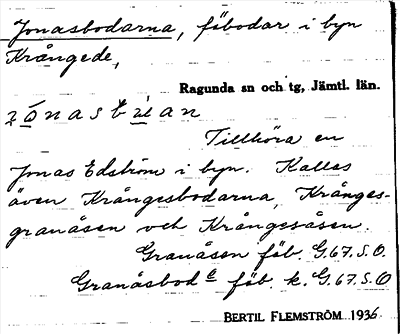 Jonasbodarna, fäbodar i byn
Krångede,
Ragunda sn och tg, Jämtl. län.
Tillhöra en
Jonas Edström i byn. Kallas
även Krångesbodarna, Krånges-
granåsen och Krångesåsen.
Granåsen fäb. G.67.S.O.
Granåsbod fäb. k. G.67.S.O
BERTIL FLEMSTRÖM 1936